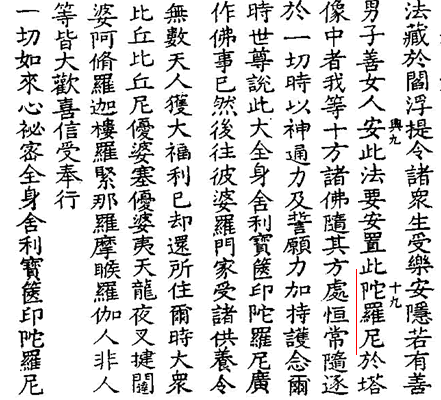 法藏於閻浮提令諸衆生受樂安隱若有善
興九
十九
男子善女人安此法要安置此陀羅尼於塔
像中者我等十方諸佛隨其方處恒常隨逐
於一切時以神通力及誓願力加持護念爾
時世尊說此大全身舍利寶篋印陀羅尼廣
作佛事已然後往彼婆羅門家受諸供養令
無數天人獲大福利已却還所住爾時大衆
比丘比丘尼優婆塞優婆夷天龍夜叉揵闥
婆阿脩羅迦樓羅緊那羅摩睺羅伽人非人
等皆大歡喜信受奉行
一切如來心祕密全身舍利寶篋印陀羅尼